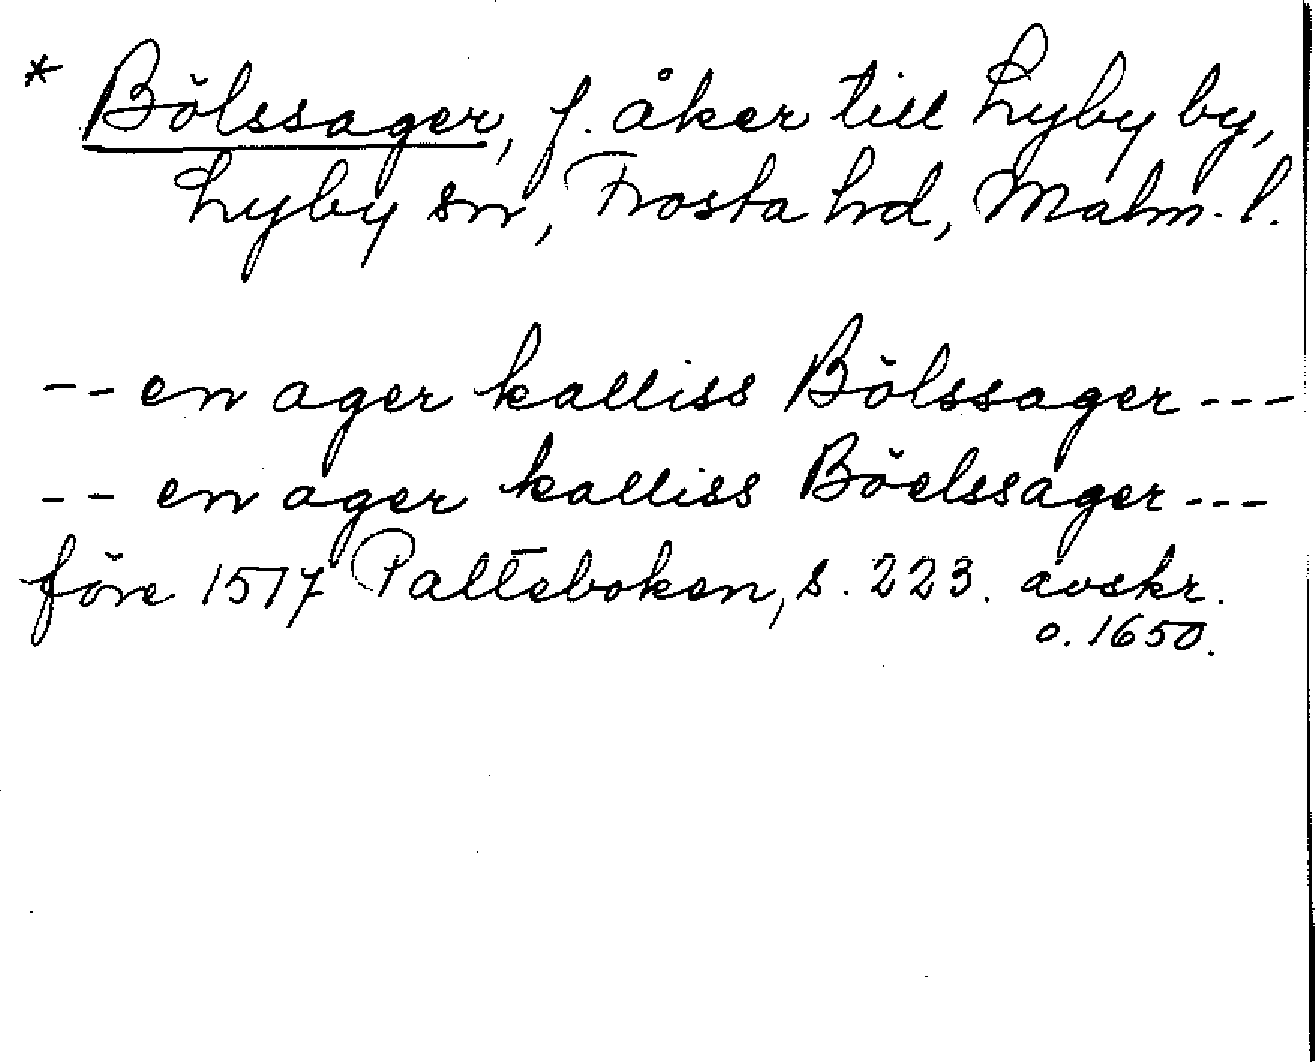 * Bölssager, f. åker till Lyby by,
Lyby sn, Frosta hd, Malm. l.
-- en ager kalliss Bölssager ---
-- en ager kalliss Böelssager ---
före 1517 Palteboken, s. 223. avskr.
o. 1650.